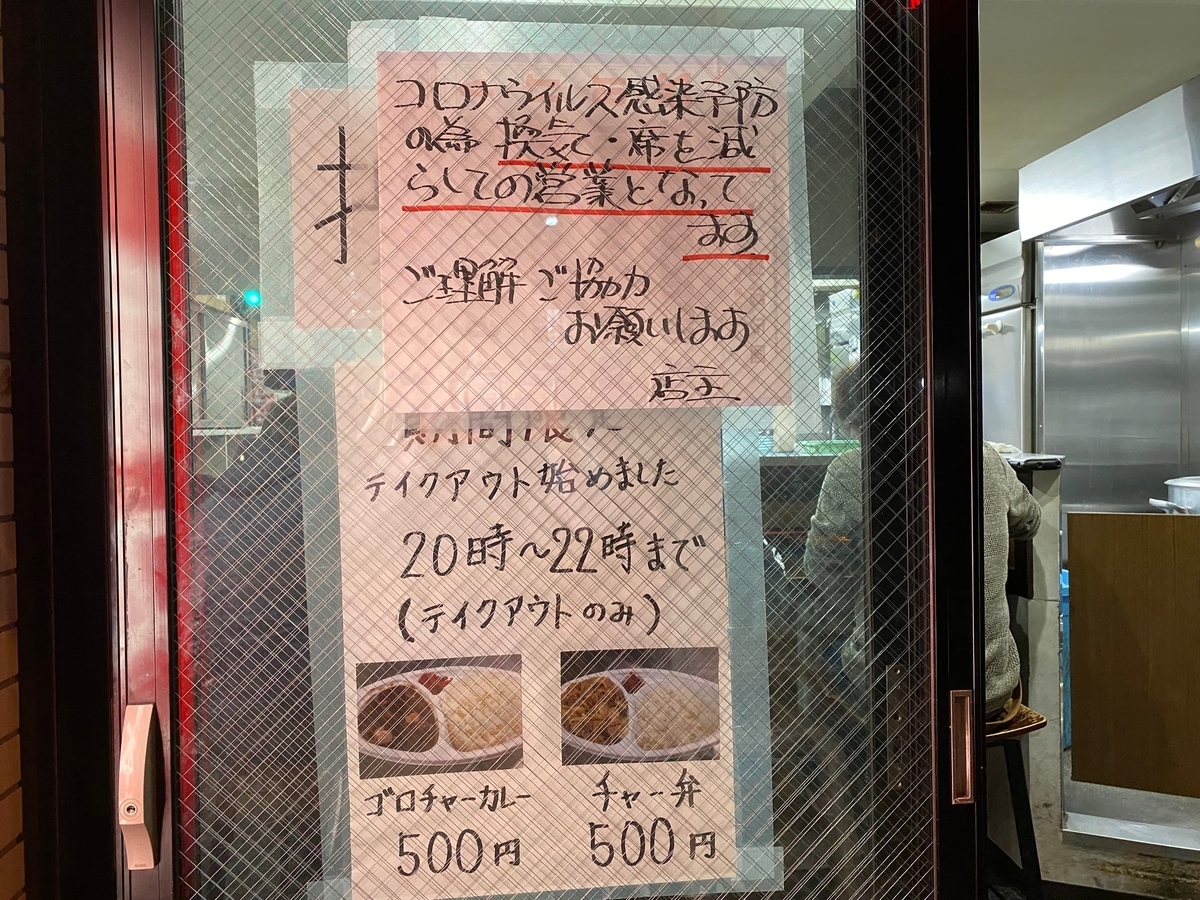 コロナウイルス感染予防
の為 換気・席を減
らしての営業となって
ます
ご理解 ご協力
お願いします
店主
期間限定
テイクアウト始めました
20時～22時まで
(テイクアウトのみ)
ゴロチャーカレー
500円
チャー弁
500円